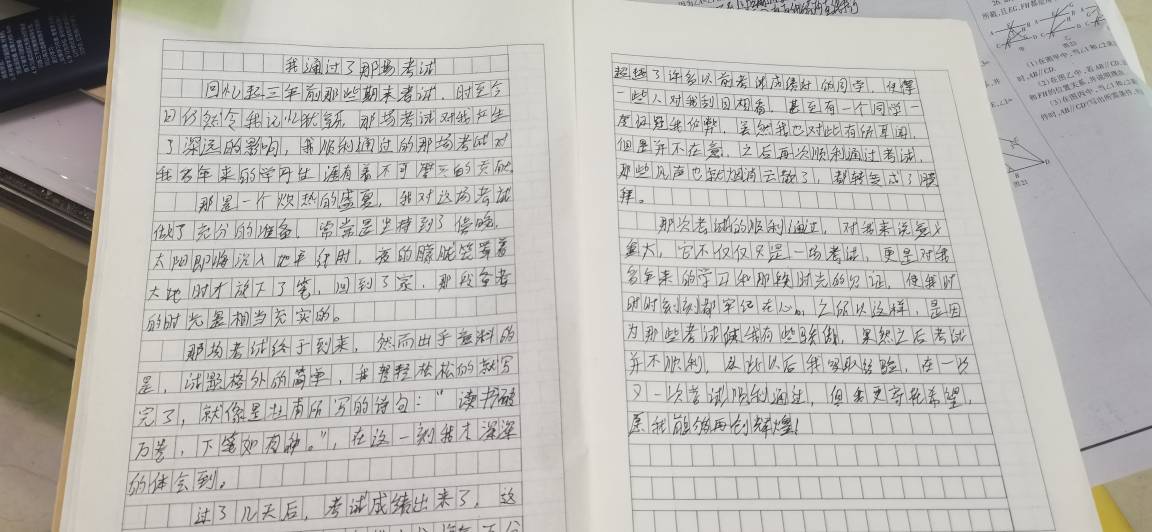 我通过了那场考试
回忆起三年前那些期末考试，时至今
日仍然令我记忆犹新，那场考试对我产生
了深远的影响，我顺利通过的那场考试对
我多年来的学习生涯有着不可磨灭的贡献
那是一个炎热的盛夏，我对这场考试
做了充分的准备，常常是坚持到了傍晚，
太阳即将没入地平线时，夜的朦胧笼罩着
大地时才放下了笔，回到了家，那段备考
的时光是相当充实的。
那场考试终于到来，然而出乎意料的
是，试题格外的简单，我轻轻松松的就写
完了，就像是杜甫所写的诗句：“读书破
万卷，下笔如有神。”，在这一刻我才深深
的体会到。
过了几天后，考试成绩出来了，这
超越了许多以前考试成绩好的同学，使得
一些人对我刮目相看，甚至有一个同学一
度怀疑我作弊，虽然我也对此有所耳闻，
但是并不在意，之后再次顺利通过考试，
那些风声也就烟消云散了，都转变成了
那次考试的顺利通过，对我来说意义
重大，它不仅仅只是一场考试，更是对我
多年来的学习和那段时光的见证，使我时
时时刻刻都牢记在心。之所以这样，是因
为那些考试使我有些骄傲，果然之后考试
并不顺利，从此以后我吸取经验，在一次
又一次考试顺利通过，但我更寄托希望，
愿我能够再创辉煌！
(1)在图甲中，
时，AB//CD.
(2)在图乙中，若AB//CD,
和FH的位置关系，并说明理由
(3)在图丙中，当∠1和∠2
件时，AB//CD?写出所需条件，
甲
乙
图21